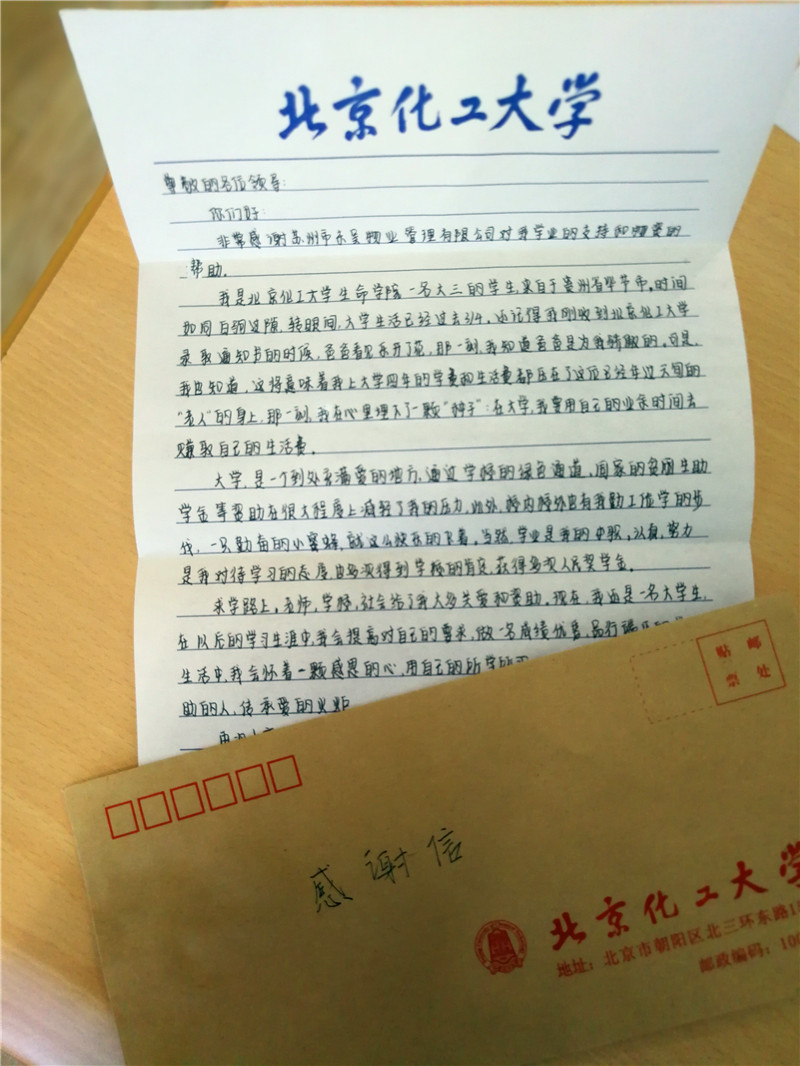 北京化工大学
尊敬的各位领导:
你们好:
非常感谢苏州市东吴物业管理有限公司对我学业的支持和物资的
帮助。
我是北京化工大学生命学院一名大三的学生,来自于贵州省毕节市。时间
如同白驹过隙,转眼间,大学生活已经过去3/4,还记得我刚收到北京化工大学
录取通知书的时候,爸爸看见乐开了花,那一刻,我知道爸爸是为我骄傲的,可是,
我也知道,这将意味着我上大学四年的学费和生活费都压在了这位已经年过天旬的
“老人”的身上,那一刻,我在心里埋下了一颗“种子”:在大学,我要用自己的业余时间去
赚取自己的生活费。
大学,是一个到处充满爱的地方,通过学校的绿色通道,国家的贫困生助
学金等资助在很大程度上减轻了我的压力,此外,校内校外也有我勤工俭学的步
伐,一只勤奋的小蜜蜂,就这么快乐的飞着,当然,学业是我的中职,认真,努力
是我对待学习的态度,也多次得到学校的肯定,获得多次人民奖学金。
求学路上,老师,学校,社会给了我太多关爱和资助,现在,我还是一名大学生,
在以后的学习生涯中,我会提高对自己的要求,做一名成绩优秀,品行
生活中,我会怀着一颗感恩的心,用自己的所学所
助的人,传承爱的火炬
贴 邮
票 处
感谢信
北京化工大学
地址:北京市朝阳区北三环东路1
邮政编码:100